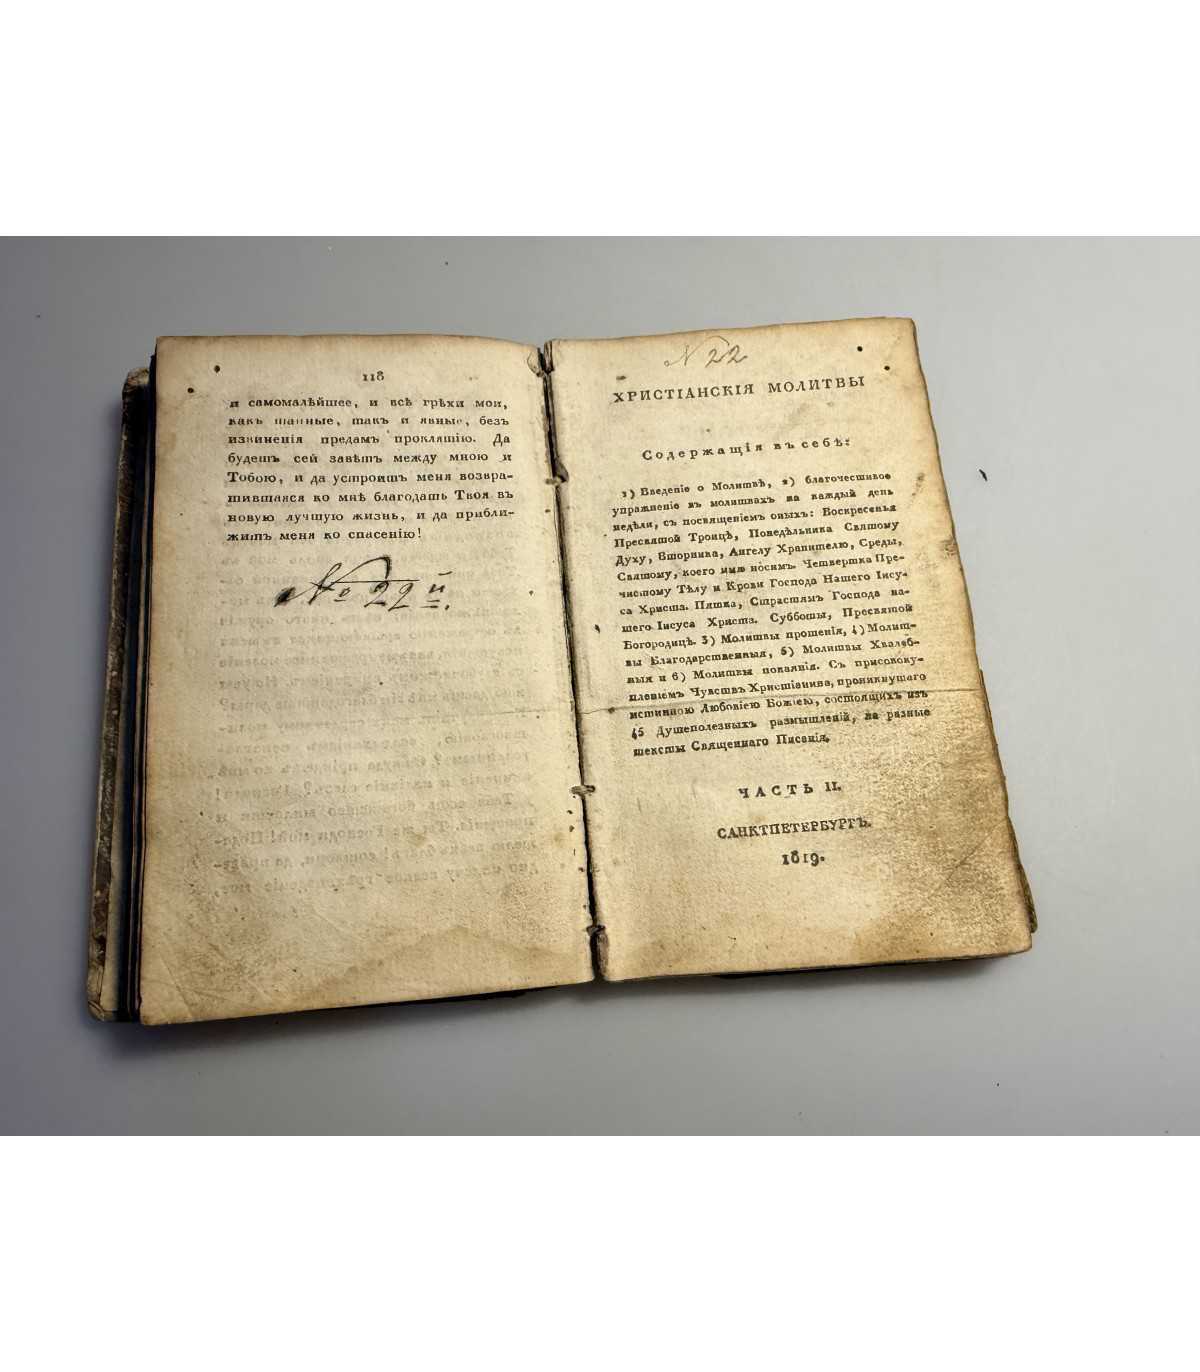 118
и самомалѣйшее, и всѣ грѣхи мои,
какъ тайные, такъ и явные, безъ
извиненія предамъ проклятію. Да
будетъ сей завѣтъ между мною и
Тобою, и да устроитъ меня возвра-
тившаяся ко мнѣ благодать Твоя въ
новую лучшую жизнь, и да прибли-
житъ меня ко спасенію!
№ 22й.
N 22
ХРИСТІАНСКІЯ МОЛИТВЫ
Содержащія въ себѣ:
1) Введеніе о Молитвѣ, 2) благочестивое
упражненіе въ молитвахъ на каждый день
недѣли, съ посвященіемъ оныхъ: Воскресенья
Пресвятой Троицѣ, Понедѣльника Святому
Духу, Вторника, Ангелу Хранителю, Среды,
Святому, коего имя носимъ. Четвертка Пре-
чистому Тѣлу и Крови Господа Нашего Іису-
са Христа. Пятка, Страстямъ Господа на-
шего Іисуса Христа. Субботы, Пресвятой
Богородицѣ. 3) Молитвы прошенія, 4) Молит-
вы Благодарственныя, 5) Молитвы Хвалеб-
ныя и 6) Молитвы покаянія. Съ присовоку-
пленіемъ Чувствъ Христіанина, проникнутаго
истинною Любовіею Божіею, состоящихъ изъ
45 Душеполезныхъ размышленій, на разные
тексты Священнаго Писанія.
ЧАСТЬ II.
САНКТПЕТЕРБУРГЪ.
1819.